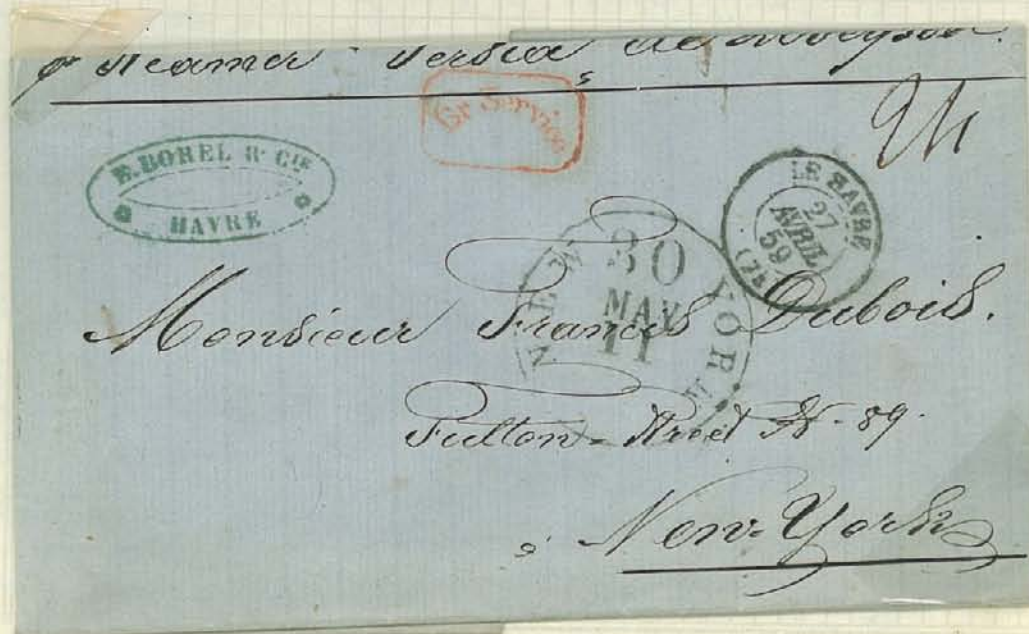 pr Steamer Persia de
Br Service
24
E. BOREL & CIE
HAVRE
LE HAVRE
27
AVRIL
59
NEW YORK
30
MAY
11
Monsieur Francis Dubois.
Fulton-Street No-89.
New-York